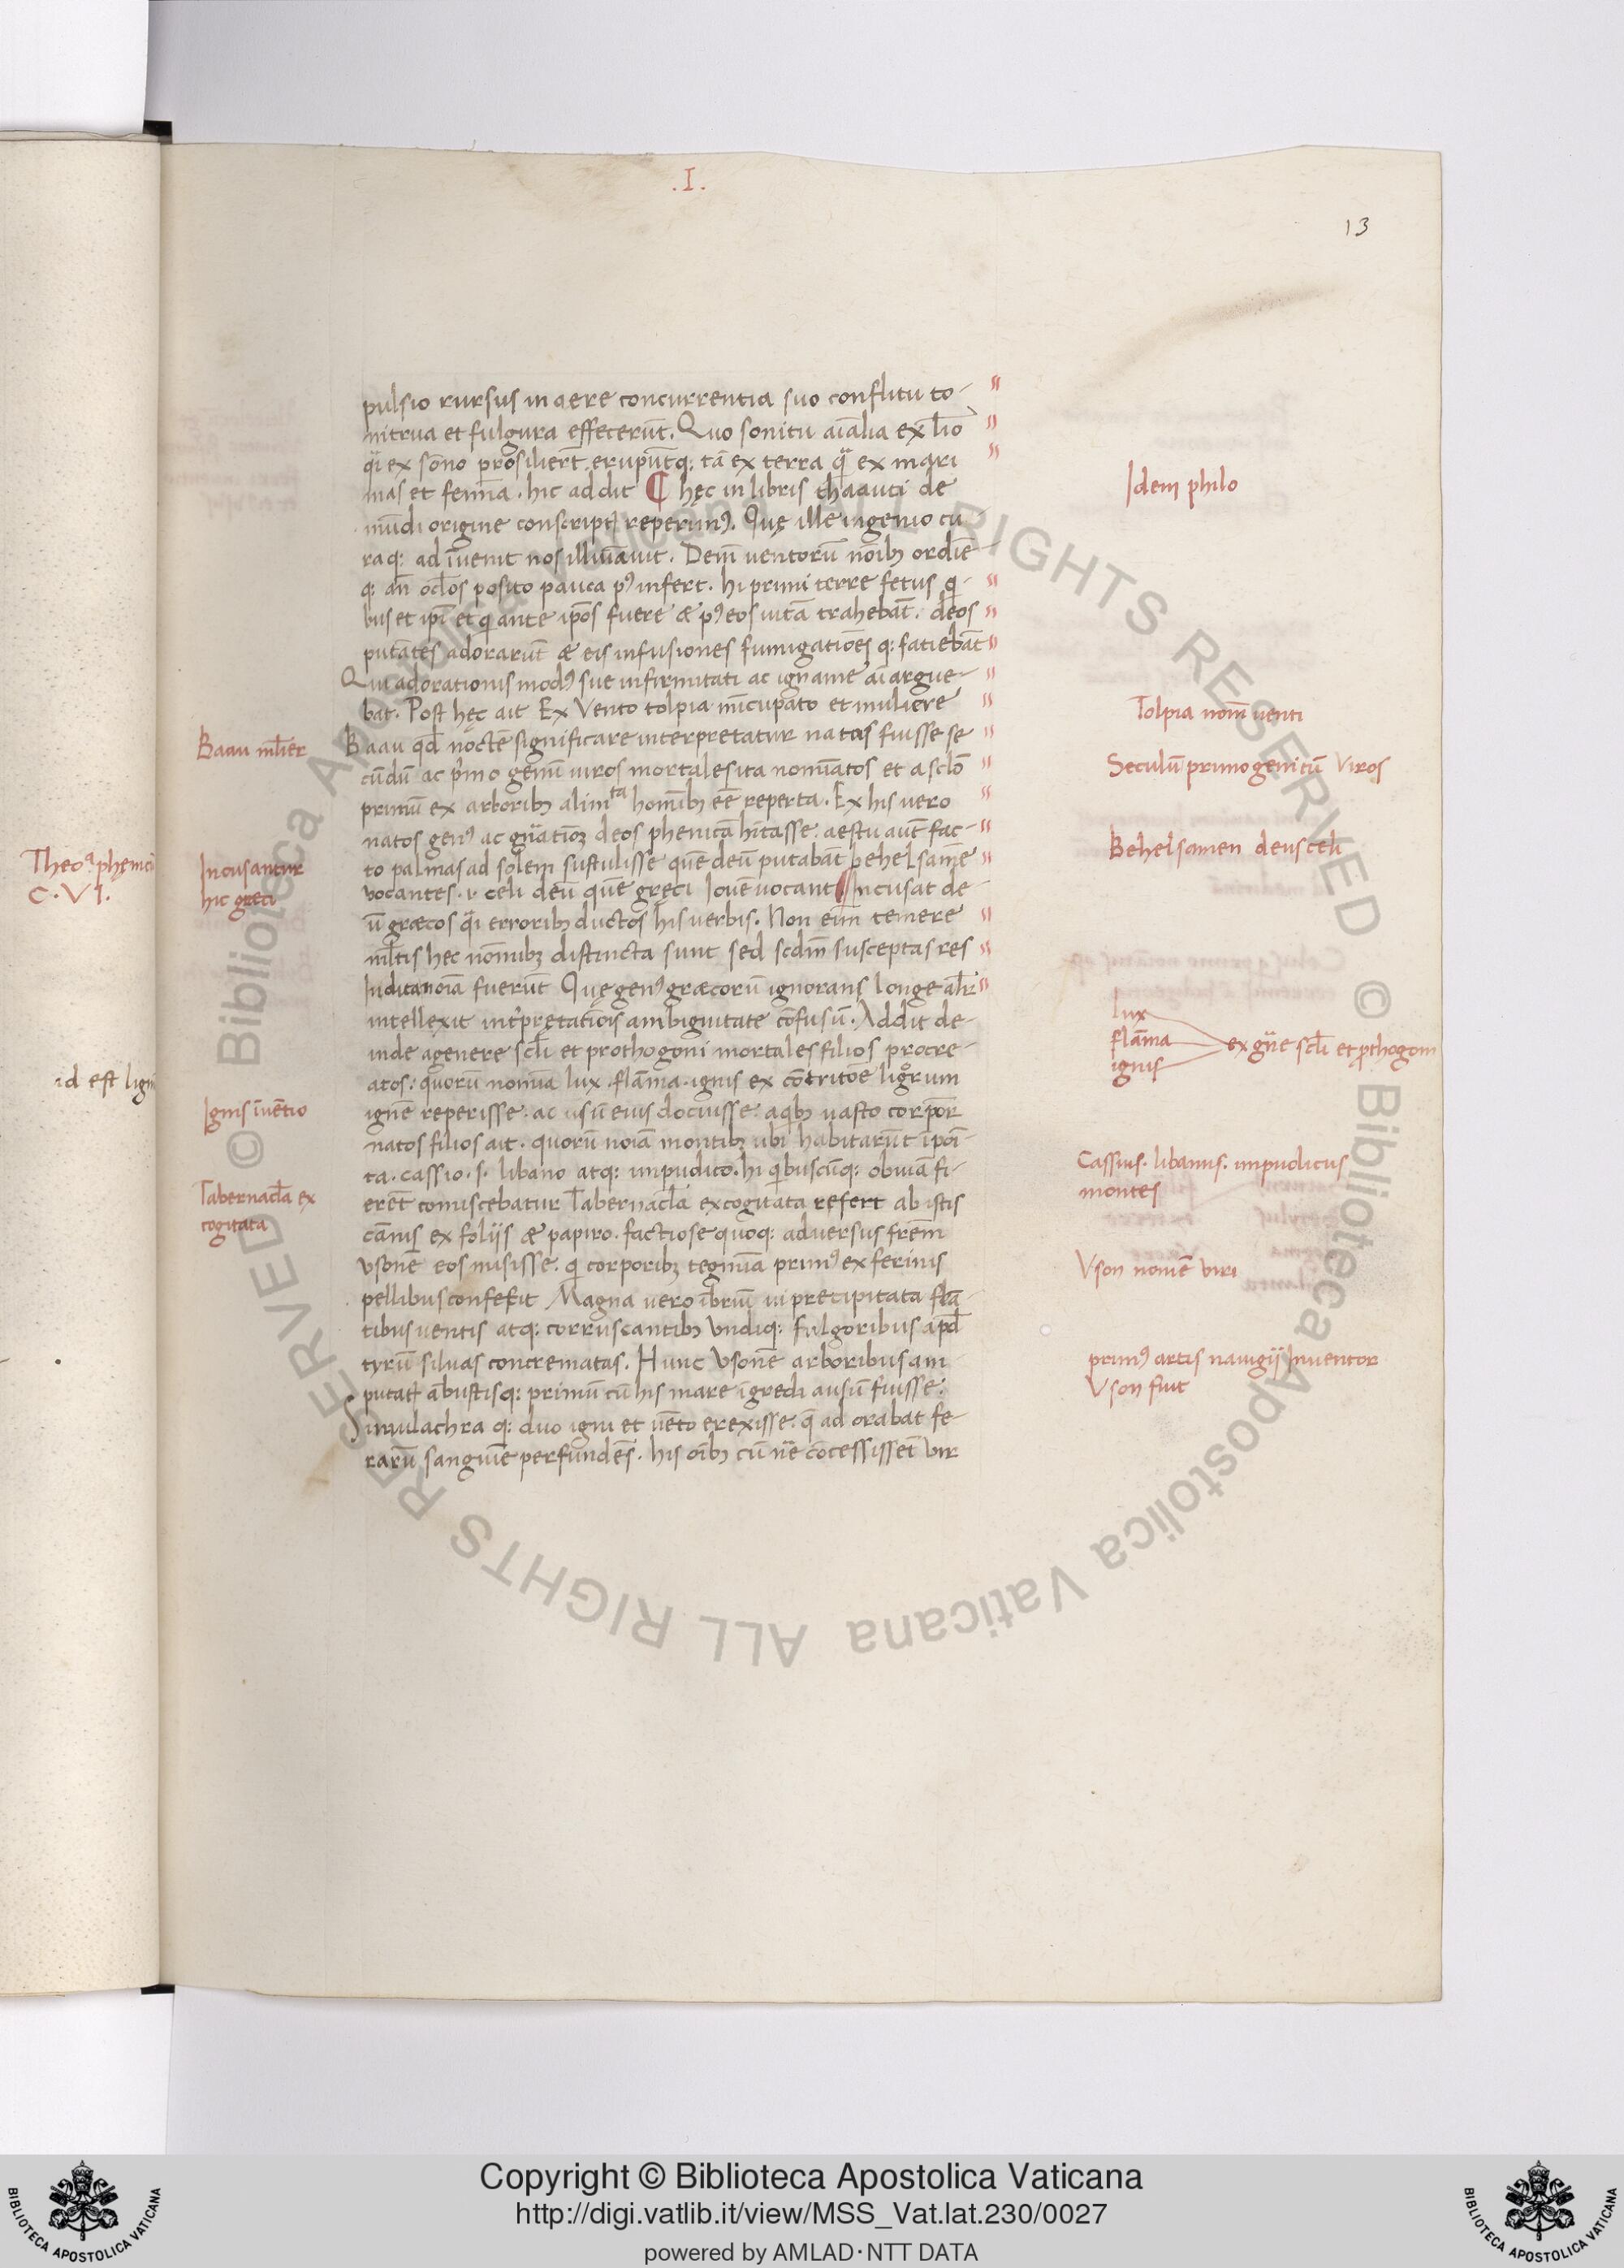 .I.
13
pulsio rursus in aere concurrentia suo conflitu to-
nitrua et fulgura effecerūt. Quo sonitu aīalia ex
ex sōno prosiliert̄. erupūtq: tā ex terra ex mari
mas et femīa. hic addit ¶ hęc in libris thaauti de
mūdi origine conscript reperim9. Quę ille ingenio cu
raq: ad īvenit nos illumīavit. Dem̄ ventorū noīb9 ordīe
posito pauca p9 infert. hi primi terre fetus q-
bus et ipī et q ante ipōs fuere & p9 eos vitā trahebāt. deos
putātes adorarūt & eis infusiones fumigatiōes q: fatiebāt
Qui adorationis mod9 sue infirmitati ac ignauie aī argue-
bat. Post hęc ait Ex Vento tolpia nūcupato et muliere
Baau qd̄ nōctē significare interpretatur natos fuisse se
cūdū ac prīmo genitū viros mortales ita nomīatos et a sclō
primū ex arborib9 alimta homīb9 eē reperta. Ex his vero
natos gen9 ac deos phenicā hītasse. aestu aūt fac-
to palmas ad solem sustulisse quē deū putabāt behelsamē
vocantes. celi deū quē gręci Iovē vocant Incusat de
ū græcos erroribus ductos his verbis. Non eīm temere
ml̄tis hec nomīnib9 distincta sunt sed scdm̄ susceptas res
Indita noīa fuerūt Quę gen9 græcorū ignorans longe al̄r
intellexit intp̄rętatiōis ambiguitate cōfusū. Addit de-
inde agenere scl̄i et prothogoni mortales filios procre-
atos: quorū nomīa lux. flāma. ignis ex cōtritōe
ignē reperisse. ac usū eius docuisse. aqb9 uasto corpōr
natos filios ait. quorū noīa montib9 ubi habitarūt īpoī-
ta. cassio. s. libano atq: impudico. hi qbuscūq: obuiā fi-
erēt comiscebatur Tabernacl̄a excogitata refert ab istis
cānis ex folijs & papiro. factiose quoq: adversus frēm
Vsonē eos misisse. q corporib9 tegmīa prim9 ex ferinis
pellibus confefit Magna uero ībriū ui precipitata flā-
tibus uentis atq: corruscantib9 undiq: fulgoribus apd̄
tyrū siluas concrematas. Hunc Vsonē arboribus am
putat ābustisq: primū cū his mare īgredi ausū fuisse.
Simulachra q: duo igni et uēto erexisse. q̄ ad orabat fe-
rarū sanguīe perfundēs. his oīb9 cū concessissēt uir
Idem philo
Tolpia nom̄ uenti
Seculū primogenitū Viros
Behelsamen deus celi
lux
flāma
ignis
ex gn̄e scl̄i et prthogoni
Cassius. libanus. impudicus
montes
Vson nomē viri
prim9 artis nauigij Inventor
Vson fuit
Baau ml̄ier
Incusantur
hic greci
Ignis īuētio
Tabernacl̄a ex
cogitata
Theoa phęnici
C. VI.
id est lign
Copyright © Biblioteca Apostolica Vaticana
http://digi.vatlib.it/view/MSS_Vat.lat.230/0027
powered by AMLAD·NTT DATA
BIBLIOTECA APOSTOLICA VATICANA
BIBLIOTECA APOSTOLICA VATICANA
© Biblioteca Apostolica Vaticana ALL RIGHTS RESERVED © Biblioteca Apostolica Vaticana ALL RIGHTS RESERVED